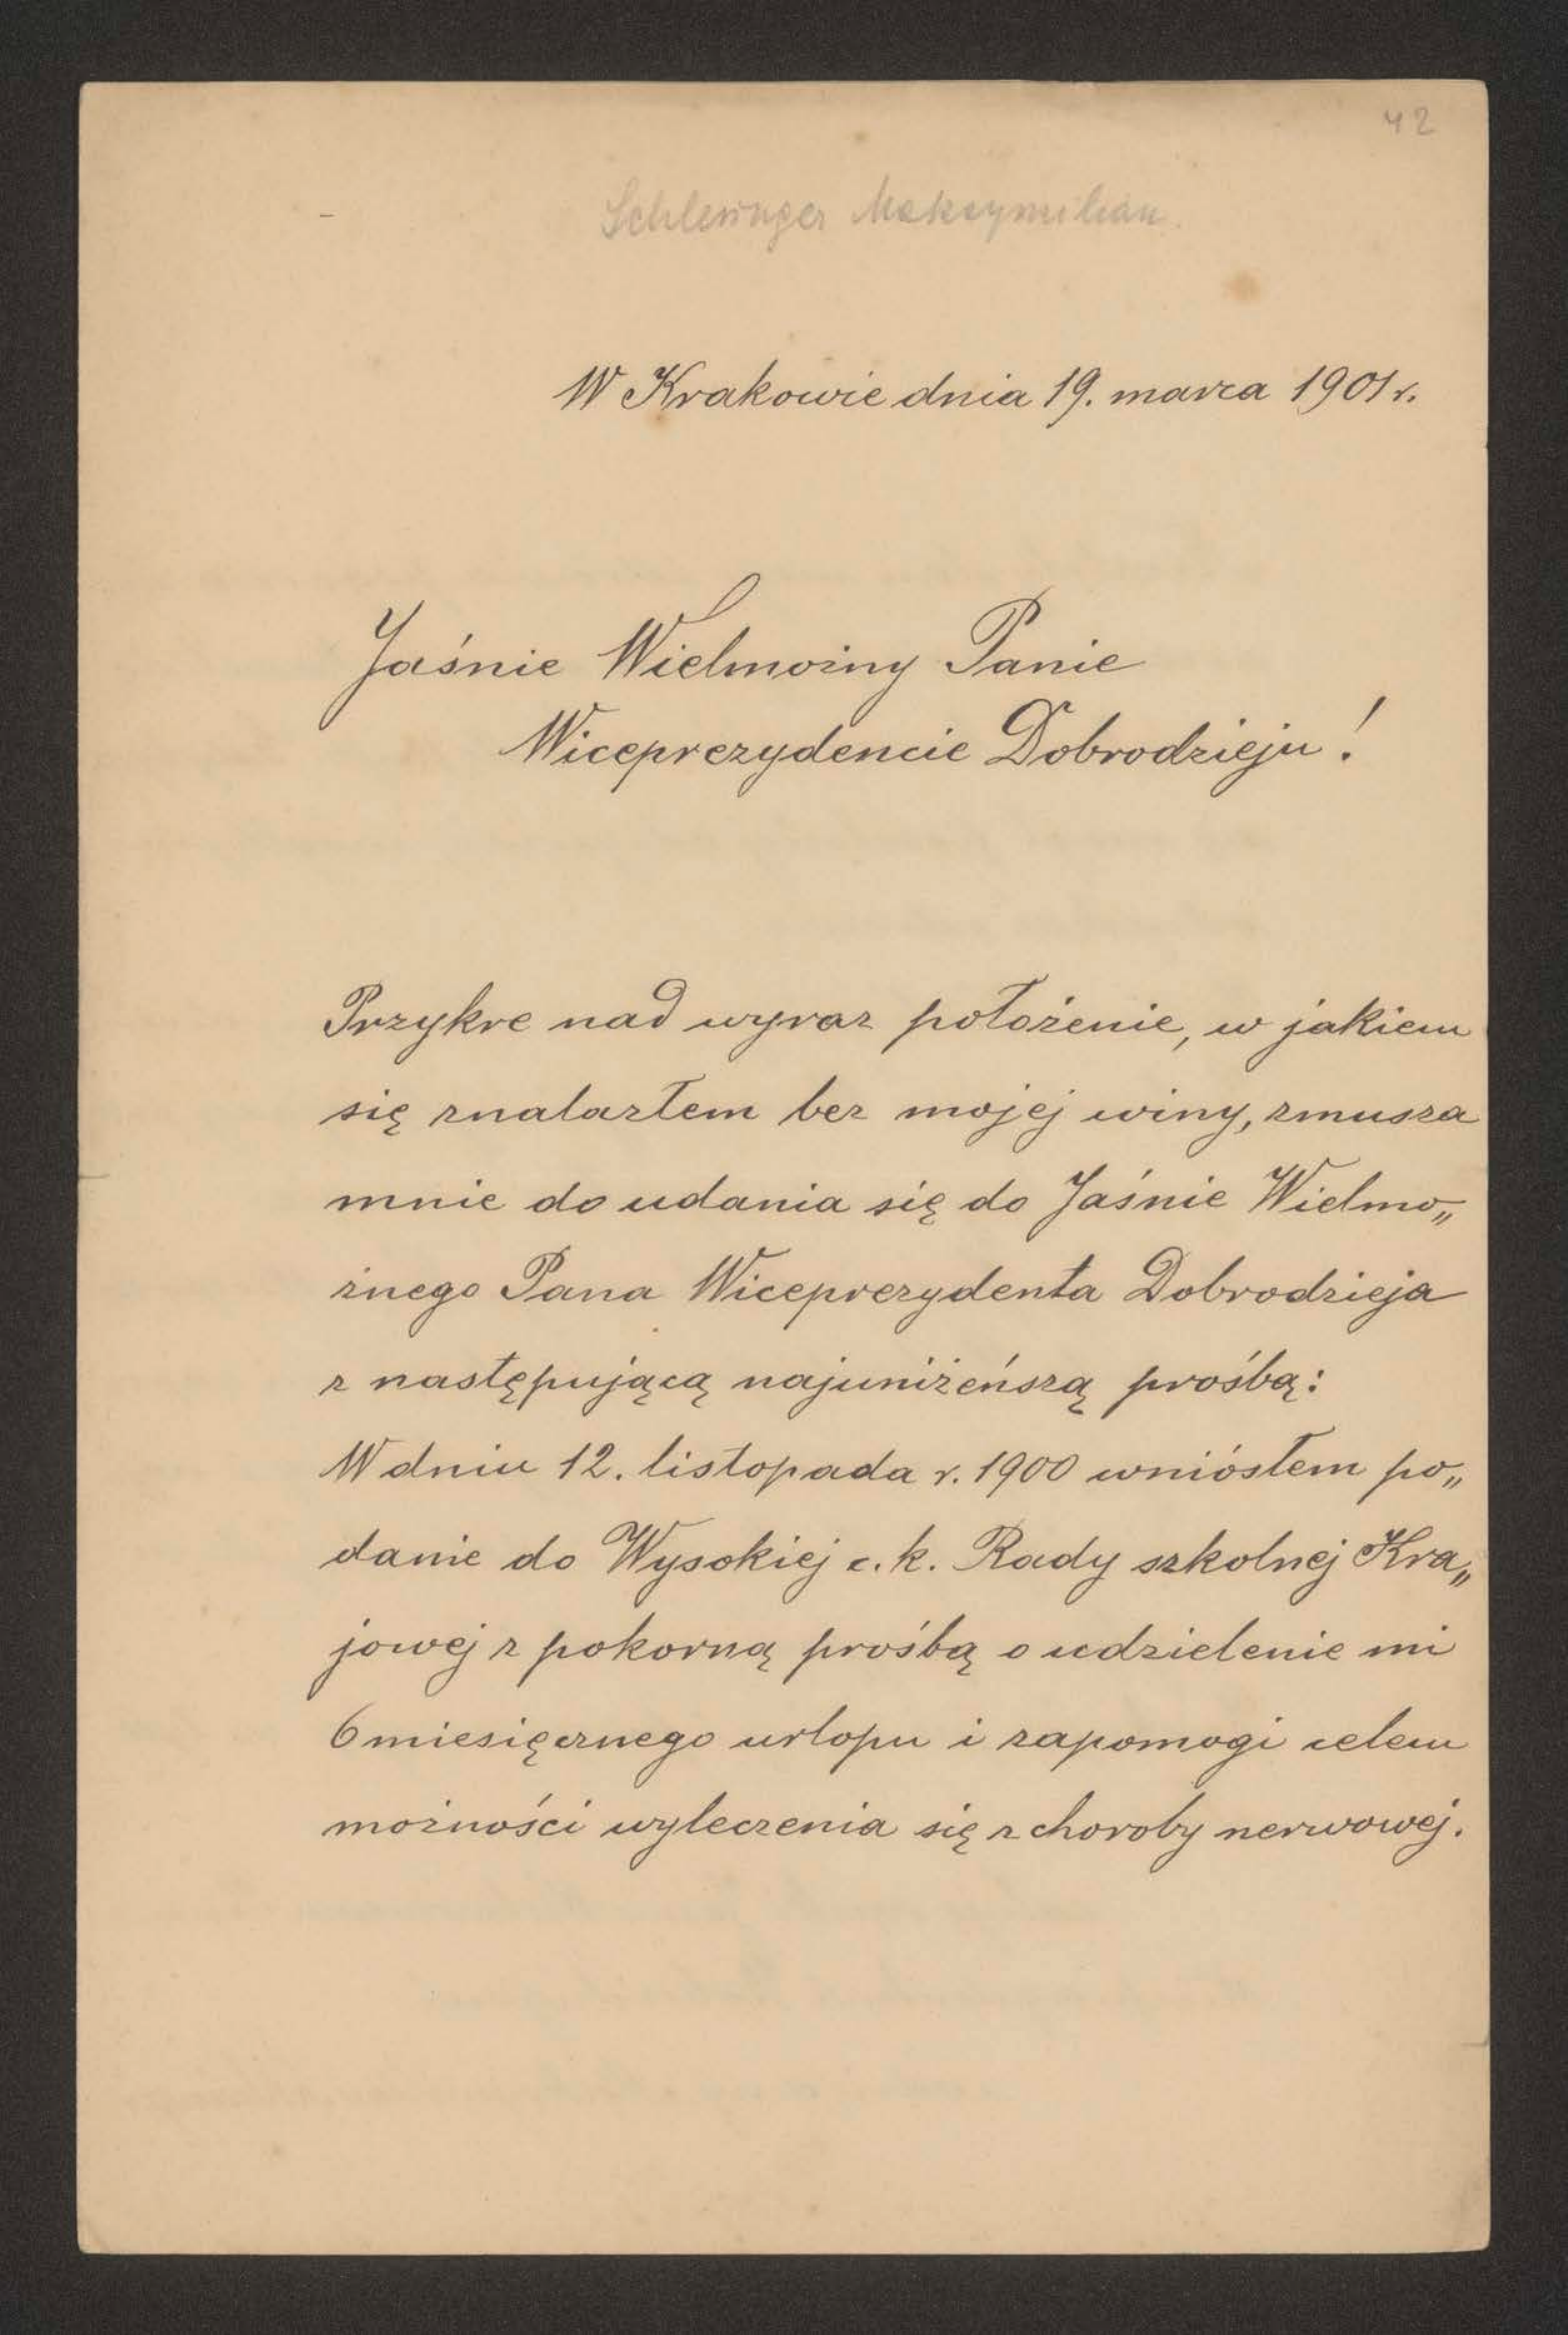 42
Schlesinger Maksymilian.
W Krakowie dnia 19. marca 1901 r.
Jaśnie Wielmożny Panie
Wiceprezydencie Dobrodzieju!
Przykre nad wyraz położenie, w jakiem
się znalazłem bez mojej winy, zmusza
mnie do udania się do Jaśnie Wielmo„
żnego Pana Wiceprezydenta Dobrodzieja
z następującą najuniżeńszą prośbą:
W dniu 12. listopada r. 1900 wniósłem po„
danie do Wysokiej c. k. Rady szkolnej Kra„
jowej z pokorną prośbą o udzielenie mi
6miesięcznego urlopu i zapomogi celem
możności wyleczenia się z choroby nerwowej.